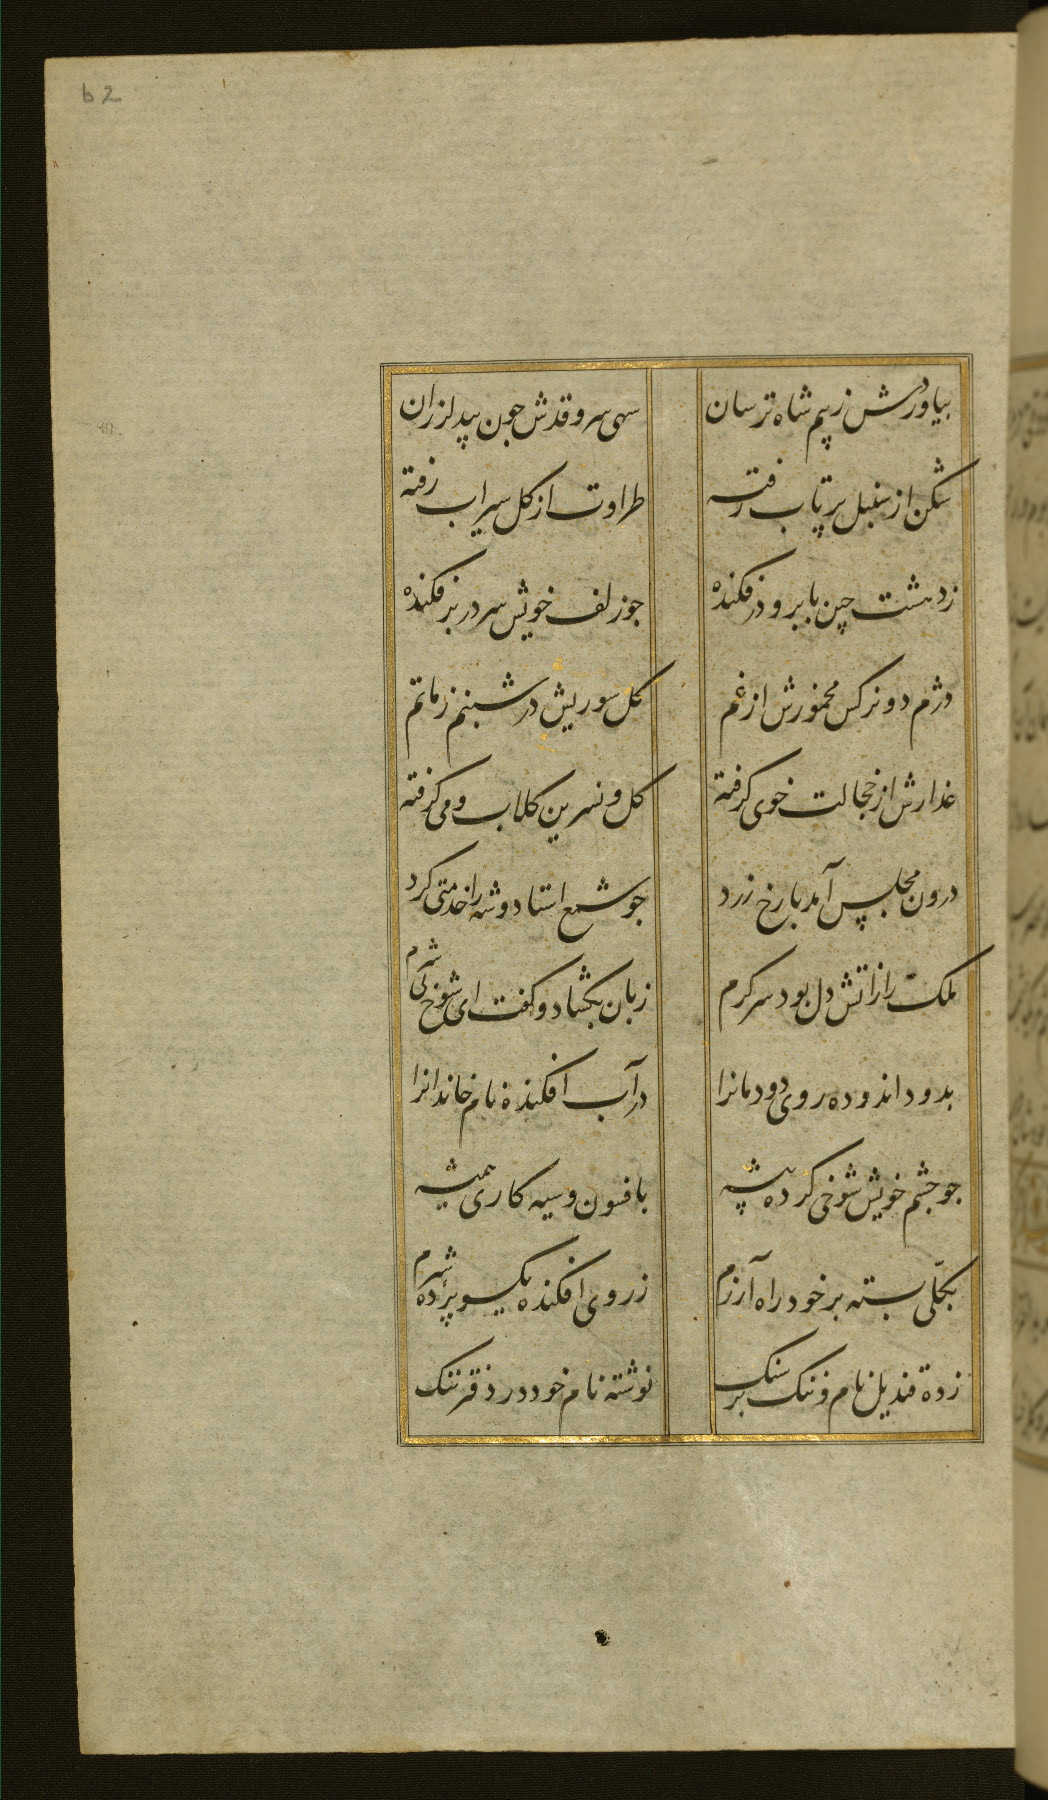 62
بیاوردش ز بیم شاه ترسان سهی سرو قدش جون بید لرزان
شکن از سنبل پرتاب رفته طراوت از کل سیراب رفته
ز دهشت جین بابرو در فکنده جو زلف خویش سر در بر فکنده
دژم دو نرکس مخمورش از غم کل سوریش در شبنم ز ماتم
عذارش از خجالت خوی کرفته کل و نسرین کلاب و می کرفته
درون مجلس آمد با رخ زرد جو شمع استاد و شه را خدمتی کرد
ملک را ز اتش دل بود سر کرم زبان بکشاد و کفت ای شوخ بی شرم
بدود اندوده روی دودمانرا در آب افکنده نام خاندانرا
جو جشم خویش شوخی کرده پیشه بافسون و سیه کاری همیشه
بکلی بسته بر خود راه آزرم ز روی افکنده یکسو پرده شرم
زده قندیل نام و ننک بر سنک نوشته نام خود در دفتر ننک